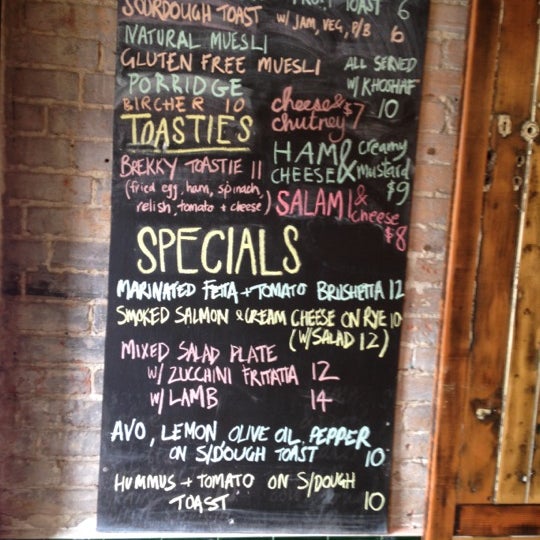 TOAST 6
SOURDOUGH TOAST W/ JAM, VEG, P/B 6
NATURAL MUESLI
GLUTEN FREE MUESLI ALL SERVED
PORRIDGE W/ KHOSHAF
BIRCHER 10 10
cheese &
chutney $7
TOASTIES
HAM & creamy
CHEESE mustard
$9
BREKKY TOASTIE 11
(fried egg, ham, spinach,
relish, tomato + cheese)
SALAMI &
cheese
$8
SPECIALS
MARINATED FETTA + TOMATO BRUSHETTA 12
SMOKED SALMON & CREAM CHEESE ON RYE 10
(W/SALAD 12)
MIXED SALAD PLATE
W/ ZUCCHINI FRITTATTA 12
W/ LAMB 14
AVO, LEMON, OLIVE OIL, PEPPER
ON S/D'OUGH TOAST 10
HUMMUS + TOMATO ON S/DOUGH
TOAST 10